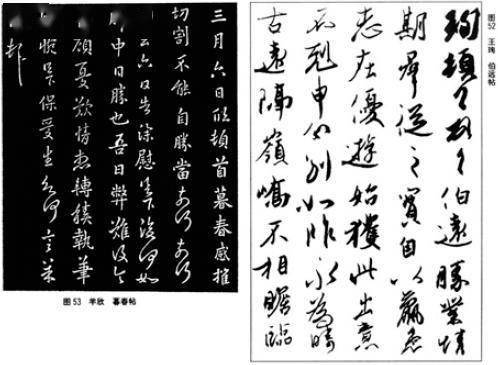 三月六日欣頓首暮春感摧
切割不能自勝當奈何奈何
六日告深慰何如
中日勝也吾日弊難復令
顧憂歎情想轉積執筆
惋保愛何言
图53 羊欣 暮春帖
图52 王珣 伯远帖
珣頓首頓首伯遠勝業情
期羣從之寶自以羸患
志在優遊始獲此出意
不剋申分別如昨永為疇
古遠隔嶺嶠不相瞻臨